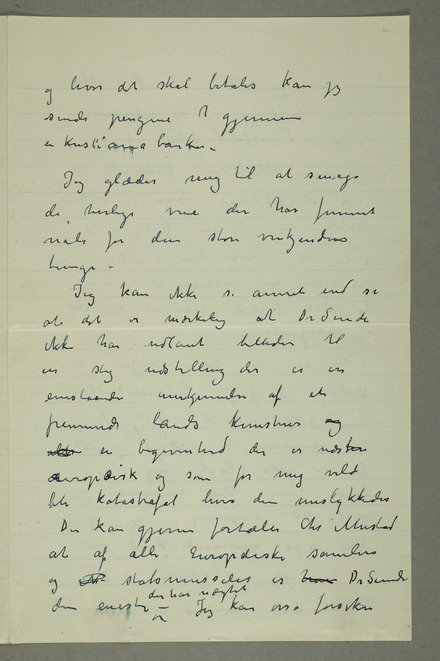 og hvis det skal betales kan jeg
sende pengene t gjennem
en Kristiania banken –
Jeg glæder meg til at smage
de herlige vine der har funnet
nåde for den store vinkjenders
tunge –
Jeg kan ikke se annet end se
at det er mærkelig at Dr Sunde
ikke har udlånt billeder til
en slig udstilling der er en
enestaaende anerkjennelse af et
fremmede lands kunstner og
en begivenhed der er næsten
europæisk og som for mig vild
ble katastrofal hvis den mislykkedes
Du kan gjerne fortælle Chr Mustad
at af alle Europæiske samlere
og statsmuseeler er Dr Sunde
den eneste der har nægtet – Jeg kan osså forsikre